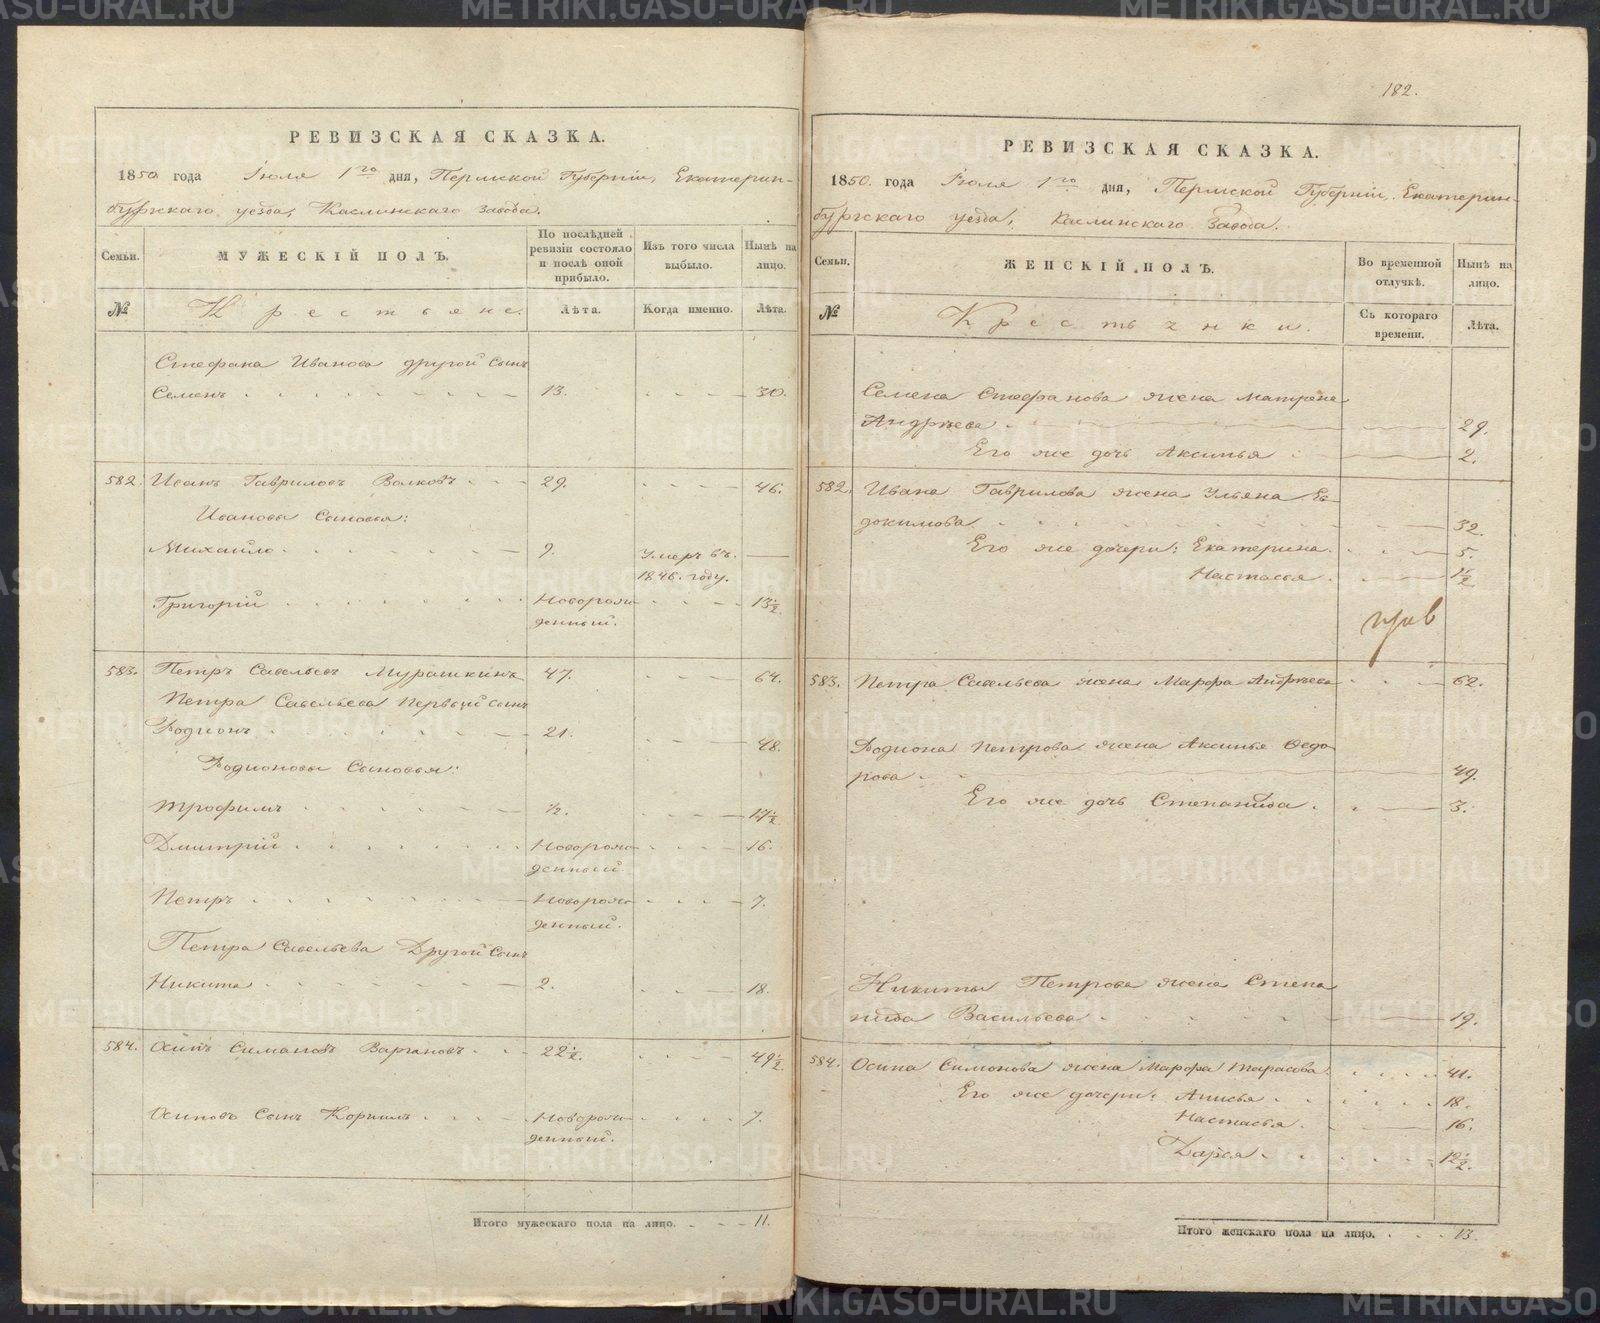 РЕВИЗСКАЯ СКАЗКА.
1850 года Іюля 1го дня, Пермской Губерніи, Екатерин-
бургскаго уезда, Каслинскаго завода.
Семьи.
МУЖЕСКІЙ ПОЛЪ.
По послѣдней ревизіи состояло и послѣ оной прибыло.
Изъ того числа выбыло.
Нынѣ на лицо.
№
Крестьяне.
Лѣта.
Когда именно.
Лѣта.
Стефана Иванова другой сынъ
Семенъ 13. 30.
582. Иванъ Гавриловъ Волковъ 29. 46.
Ивановы сыновья:
Михайло 9. Умеръ въ
1846. году.
Григорій Новорож- 13½
денный.
583. Петръ Савельевъ Мурашкинъ 47. 64.
Петра Савельева первый сынъ
Родионъ 21. 48.
Родионовы сыновья:
Трофимъ ½. 17½
Дмитрій Новорож- 16.
денный.
Петръ Новорож- 7.
денный.
Петра Савельева Другой сынъ
Никита 2. 18.
584. Осипъ Симановъ Вагановъ 22½. 49½
Осиповъ сынъ Корнилъ Новорож- 7.
денный.
Итого мужескаго пола на лицо. 11.
182.
РЕВИЗСКАЯ СКАЗКА.
1850. года Іюля 1го дня, Пермской Губерніи, Екатерин-
бургскаго уезда, Каслинскаго Завода.
Семьи.
ЖЕНСКІЙ ПОЛЪ.
Во временной отлучкѣ.
Нынѣ на лицо.
№
Крестьянки.
Съ котораго времени.
Лѣта.
Семена Стефанова жена Матрена
Андрѣева 29.
Его же дочь Аксинья 2.
582. Ивана Гаврилова жена Ульяна Ев-
докимова 32.
Его же дочери: Екатерина 5.
Настасья 1½
583. Петра Савельева жена Марфа Андрѣева 62.
Родиона Петрова жена Аксинья Ѳедо-
рова 49.
Его же дочь Степанида 3.
Никиты Петрова жена Степа
нида Васильева 19.
584. Осипа Симонова жена Марфа Тарасова 41.
Его же дочери: Анисья 18.
Настасья 16.
Дарья 12½.
Итого женскаго пола на лицо. 13.
METRIKI.GASO-URAL.RU